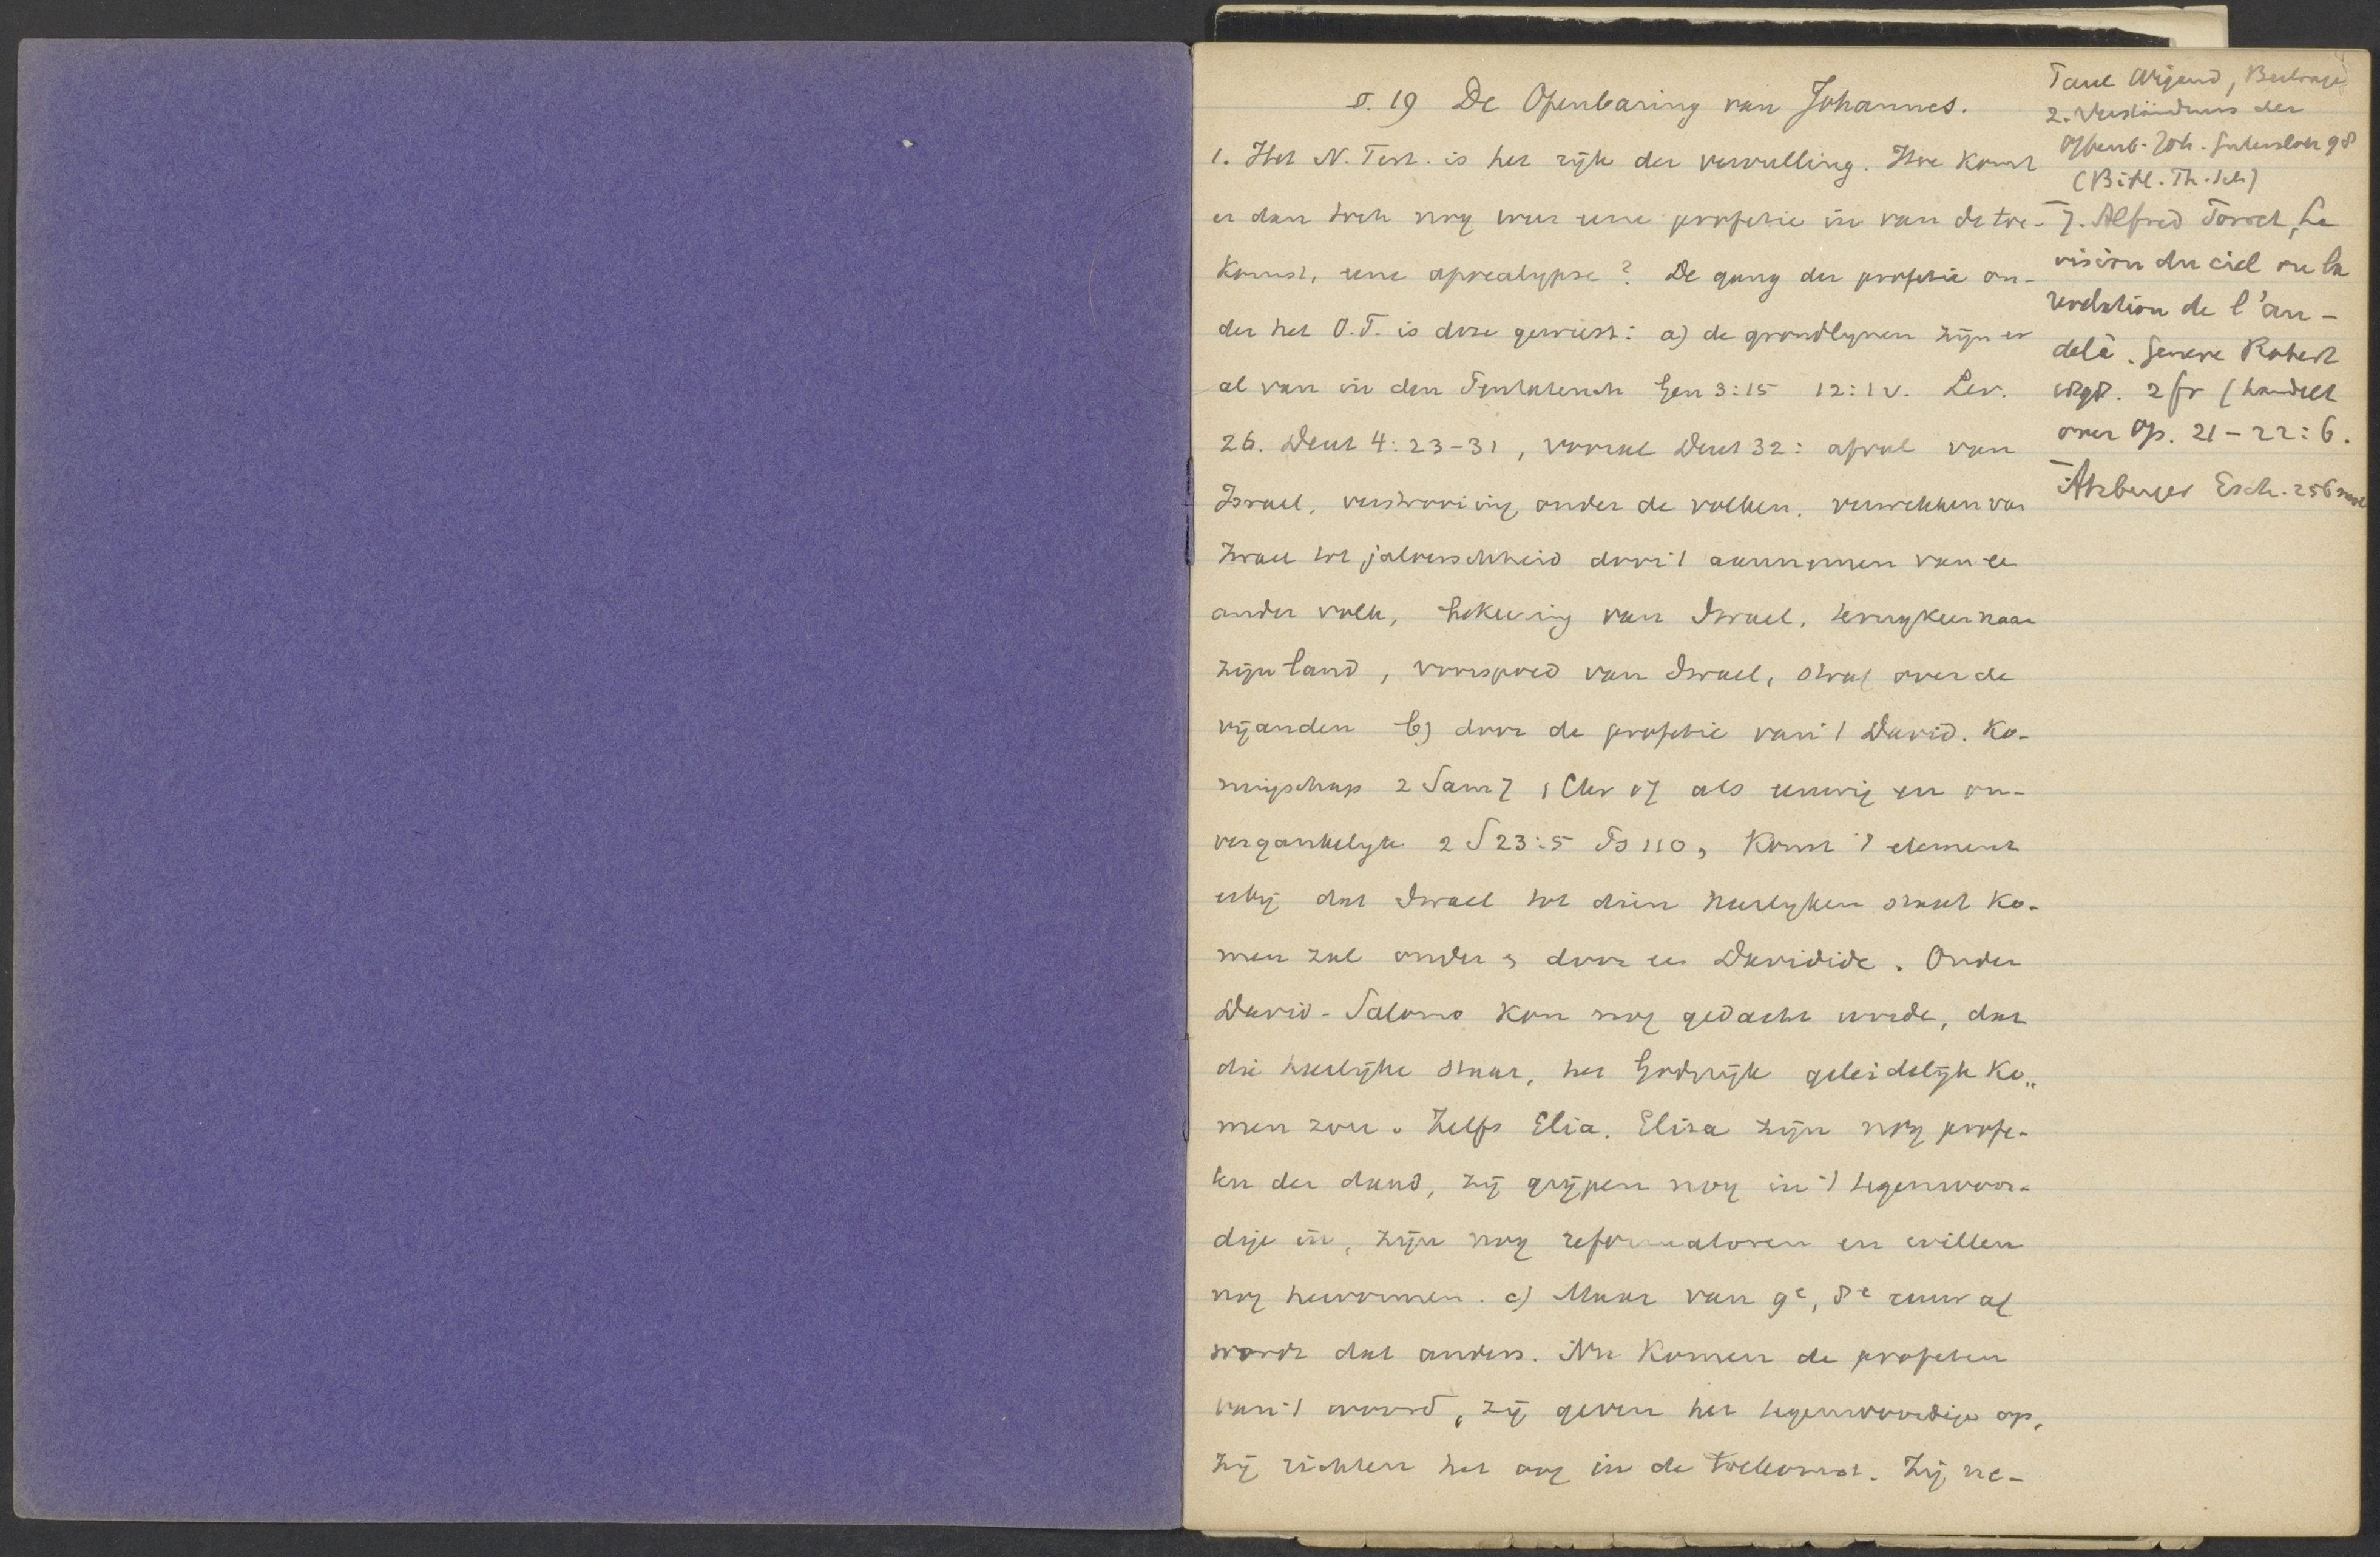 §. 19 De Openbaring van Johannes.
1. Het N. Test. is het rijk der vervulling. Hoe komt
er dan toch nog weer eene profetie in van de toe-
komst, eene apocalypse? De gang der profetie on-
der het O.T. is deze geweest: a) de grondlynen zijn er
al van in den Pentateuch Gen 3:15 12:1v. Lev.
26. Deut 4:23-31, vooral Deut 32: afval van
Israel, verstrooiing onder de volken, verwekken van
Israel tot jaloerschheid door 't aannemen van ee
ander volk, bekeering van Israel, terugkeer naar
zijn land, voorspoed van Israel, straf over de
vijanden b) door de profetie van 't David. Ko-
ningschap 2 Sam 7 1 Chr 17 als eeuwig en on-
vergankelyk 2 S 23:5 Ps 110, komt 't element
erbij dat Israel tot dien heerlyken staat ko-
men zal onder en door een Davidide. Onder
David-Salomo kon nog gedacht worde, dat
die heerlijke staat, het Godsrijk geleidelijk ko-
men zou. Zelfs Elia, Elisa zijn nog profe-
ten der daad, zij grijpen nog in 't tegenwoor-
dige in, zijn nog reformatoren en willen
nog hervormen. c) Maar van 9e, 8e eeuw af
wordt dat anders. Nu komen de profeten
van 't woord, zij geven het tegenwoordige op,
zij richten het oog in de toekomst. Zij ne-
Paul Wigand, Beitrage
z. Verständnis der
Offenb. Joh. Gutersloh 98
(Bibl. Th. Sch)
J. Alfred Porret, La
vision du ciel ou la
revelation de l'au-
delà. Geneve Robert
1898. 2 fr (handelt
over Op. 21-22:6.
Atzberger Esch. 256